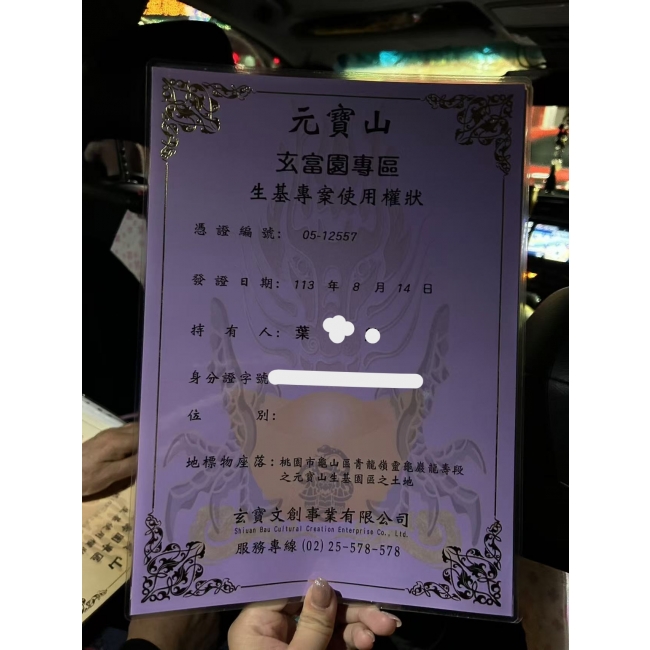 元寶山
玄富園專區
生基專案使用權狀
憑證編號： 05-12557
發證日期：113 年 8 月 14 日
持有人：葉
身分證字號
位別：
地標物座落：桃園市龜山區青龍嶺靈龜巖龍壽段
之元寶山生基園區之土地
玄寶文創事業有限公司
Shiuan Bau Cultural Creation Enterprise Co., Ltd.
服務專線(02)25-578-578